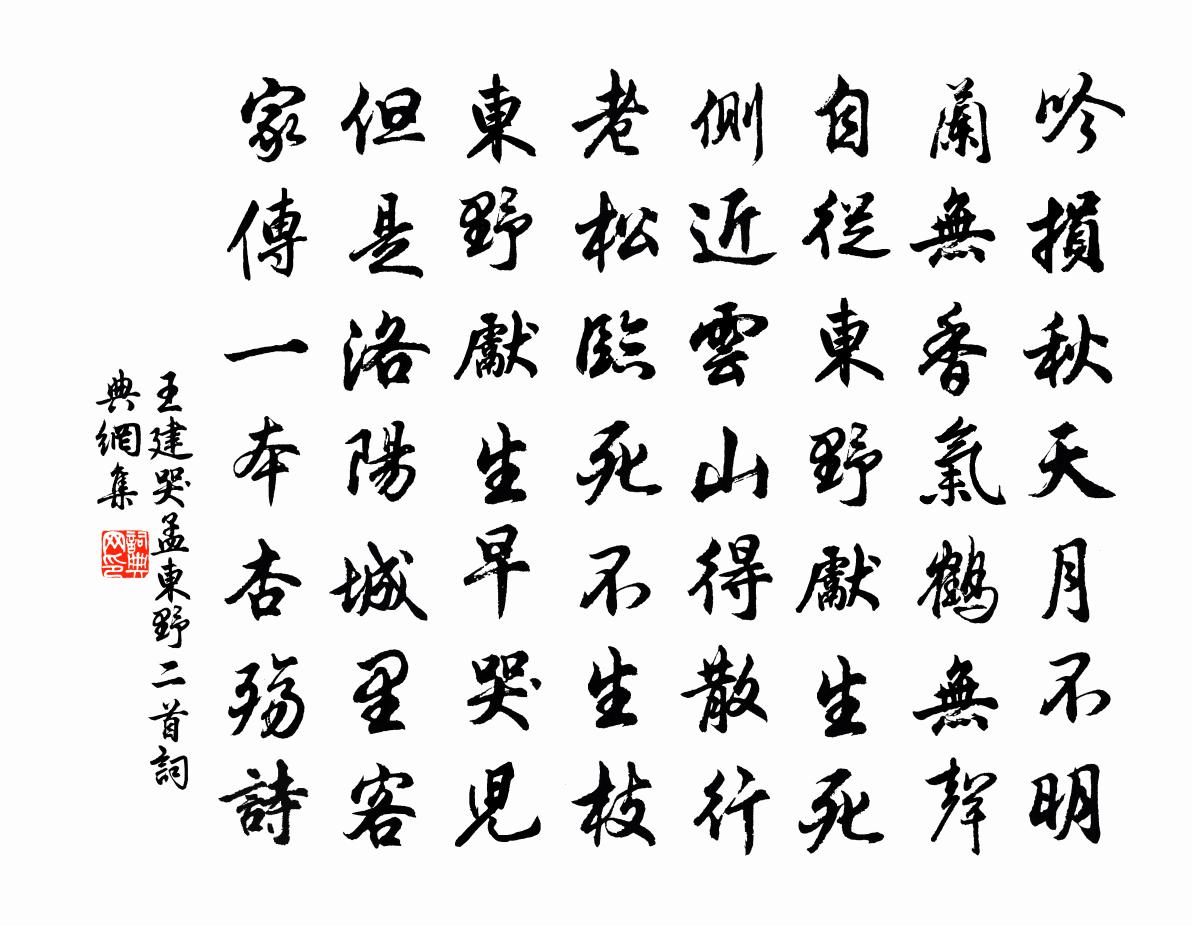 吟損秋天月不明
蘭無香氣鶴無聲
自從東野獻生死
側近雲山得散行
老松臨死不生枝
東野獻生早哭兒
但是洛陽城里客
家傳一本杏殤詩
王建哭孟東野二首詞
典網集
詞典
网印